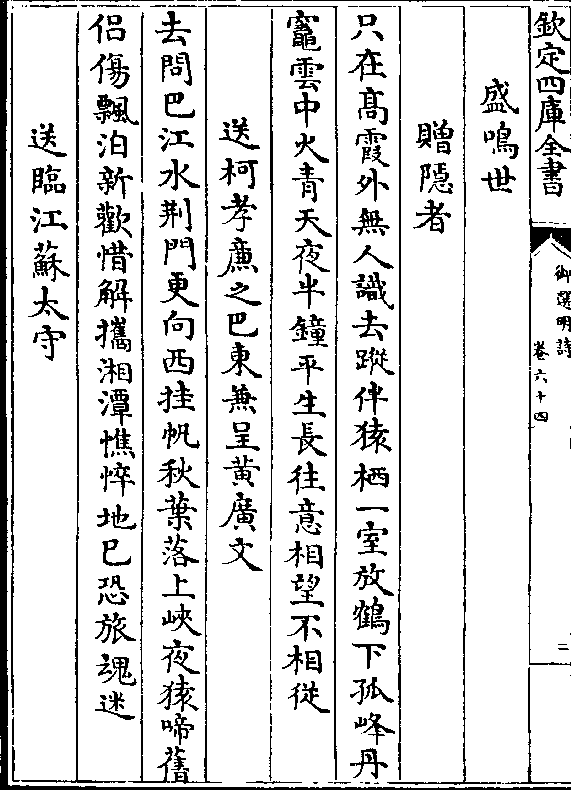 欽定四庫全書
御選明詩
卷六十四
二
盛鳴世
贈隱者
只在高霞外無人識去蹤伴猿栖一室放鶴下孤峰丹
竈雲中火青天夜半鐘平生長往意相望不相從
送柯孝廉之巴東兼呈黃廣文
去問巴江水荆門更向西挂帆秋葉落上峽夜猿啼舊
侶傷飄泊新歡惜解攜湘潭憔悴地已恐旅魂迷
送臨江蘇太守